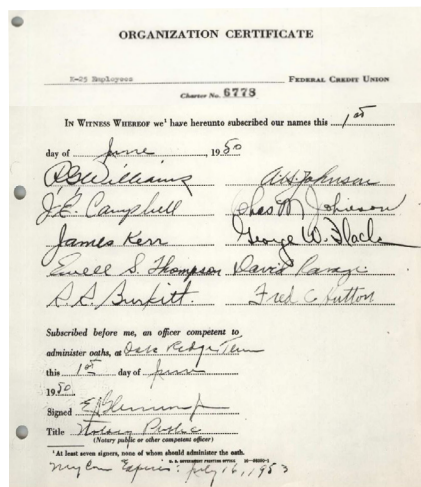 ORGANIZATION CERTIFICATE
K-25 Employees FEDERAL CREDIT UNION
Charter No. 6778
IN WITNESS WHEREOF we¹ have hereunto subscribed our names this 1st
day of June, 1950
R.G. Williams A.H. Johnson
J.E. Campbell Chas M Johnson
James Kerr George W. Flack
Ewell S. Thompson David
R.A. Burkitt. Fred C Hutton
Subscribed before me, an officer competent to
administer oaths, at Oak Ridge Tenn
this 1st day of June
1950
Signed
Title Notary Public
(Notary public or other competent officer)
¹At least seven signers, none of whom should administer the oath.
U. S. GOVERNMENT PRINTING OFFICE
My Com Expires: July 16, 1953